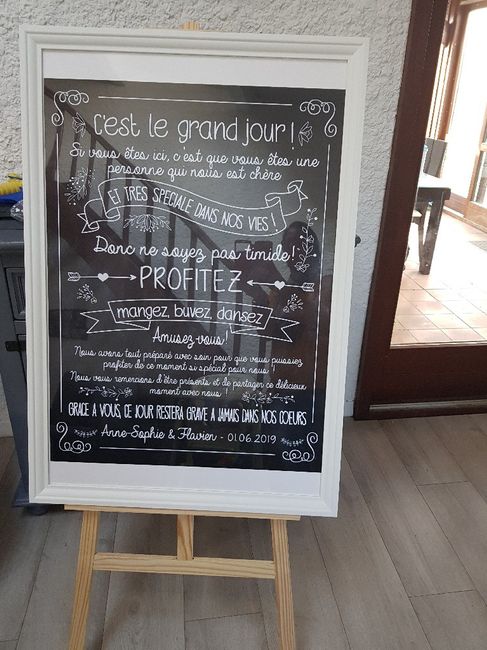 C'est le grand jour !
Si vous êtes ici, c'est que vous êtes une
personne qui nous est chère
ET TRES SPECIALE DANS NOS VIES !
Donc ne soyez pas timide!
PROFITEZ
mangez, buvez, dansez
Amusez-vous !
Nous avons tout préparé avec soin pour que vous puissiez
profiter de ce moment si spécial pour nous !
Nous vous remercions d'être présents et de partager ce délicieux
moment avec nous !
GRACE A VOUS, CE JOUR RESTERA GRAVE A JAMAIS DANS NOS COEURS
Anne-Sophie & Flavien - 01.06.2019